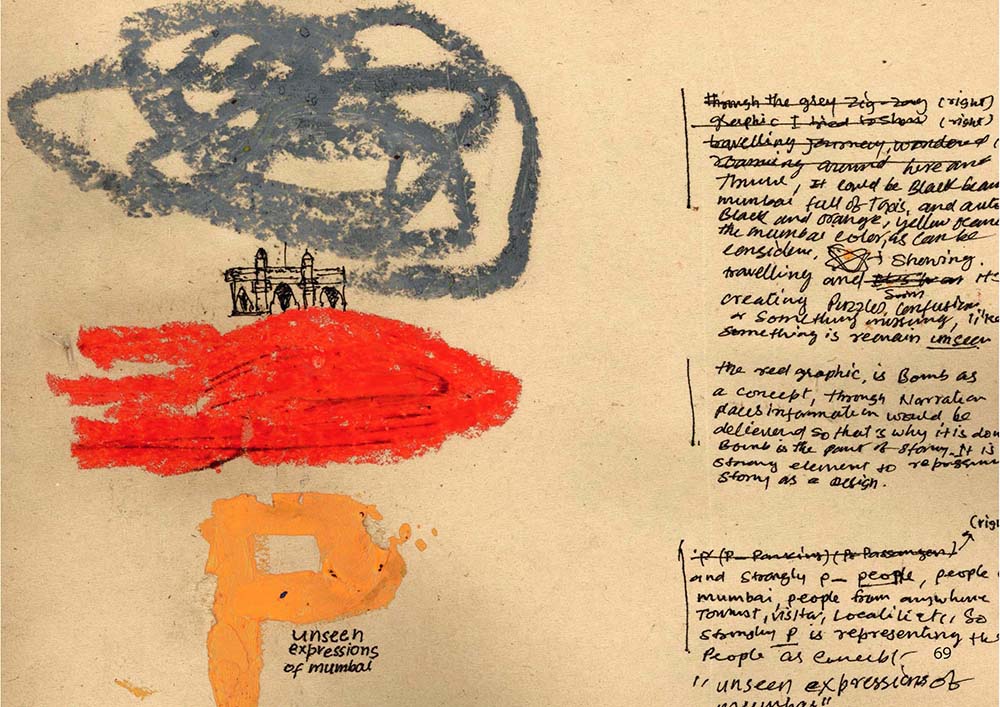 through the grey zig-zag (right)
graphic I tried to show (right)
travelling journey, wondered
roaming around here and
There, It could be Black beau
mumbai full of Taxis, and auto
Black and orange, yellow
the mumbai color, as can be
consider, showing.
travelling and It
Sum
creating Puzzled, confusion
or Something missing, like
something is remain unseen
the red graphic, is Bomb as
a concept, through Narration
places information would be
delievered so that's why it is don
Bomb is the part of story. It is
strong element to represen
Story as a design.
(righ
'P' (P- Parking) (P- Passanger)
and strongly p- people, people
mumbai, people from anywhere
Tourist, visitor, Localili etc, So
strongly P is representing the
People as concept
69
unseen
expressions
of mumbai
"unseen expressions of
mumbai"